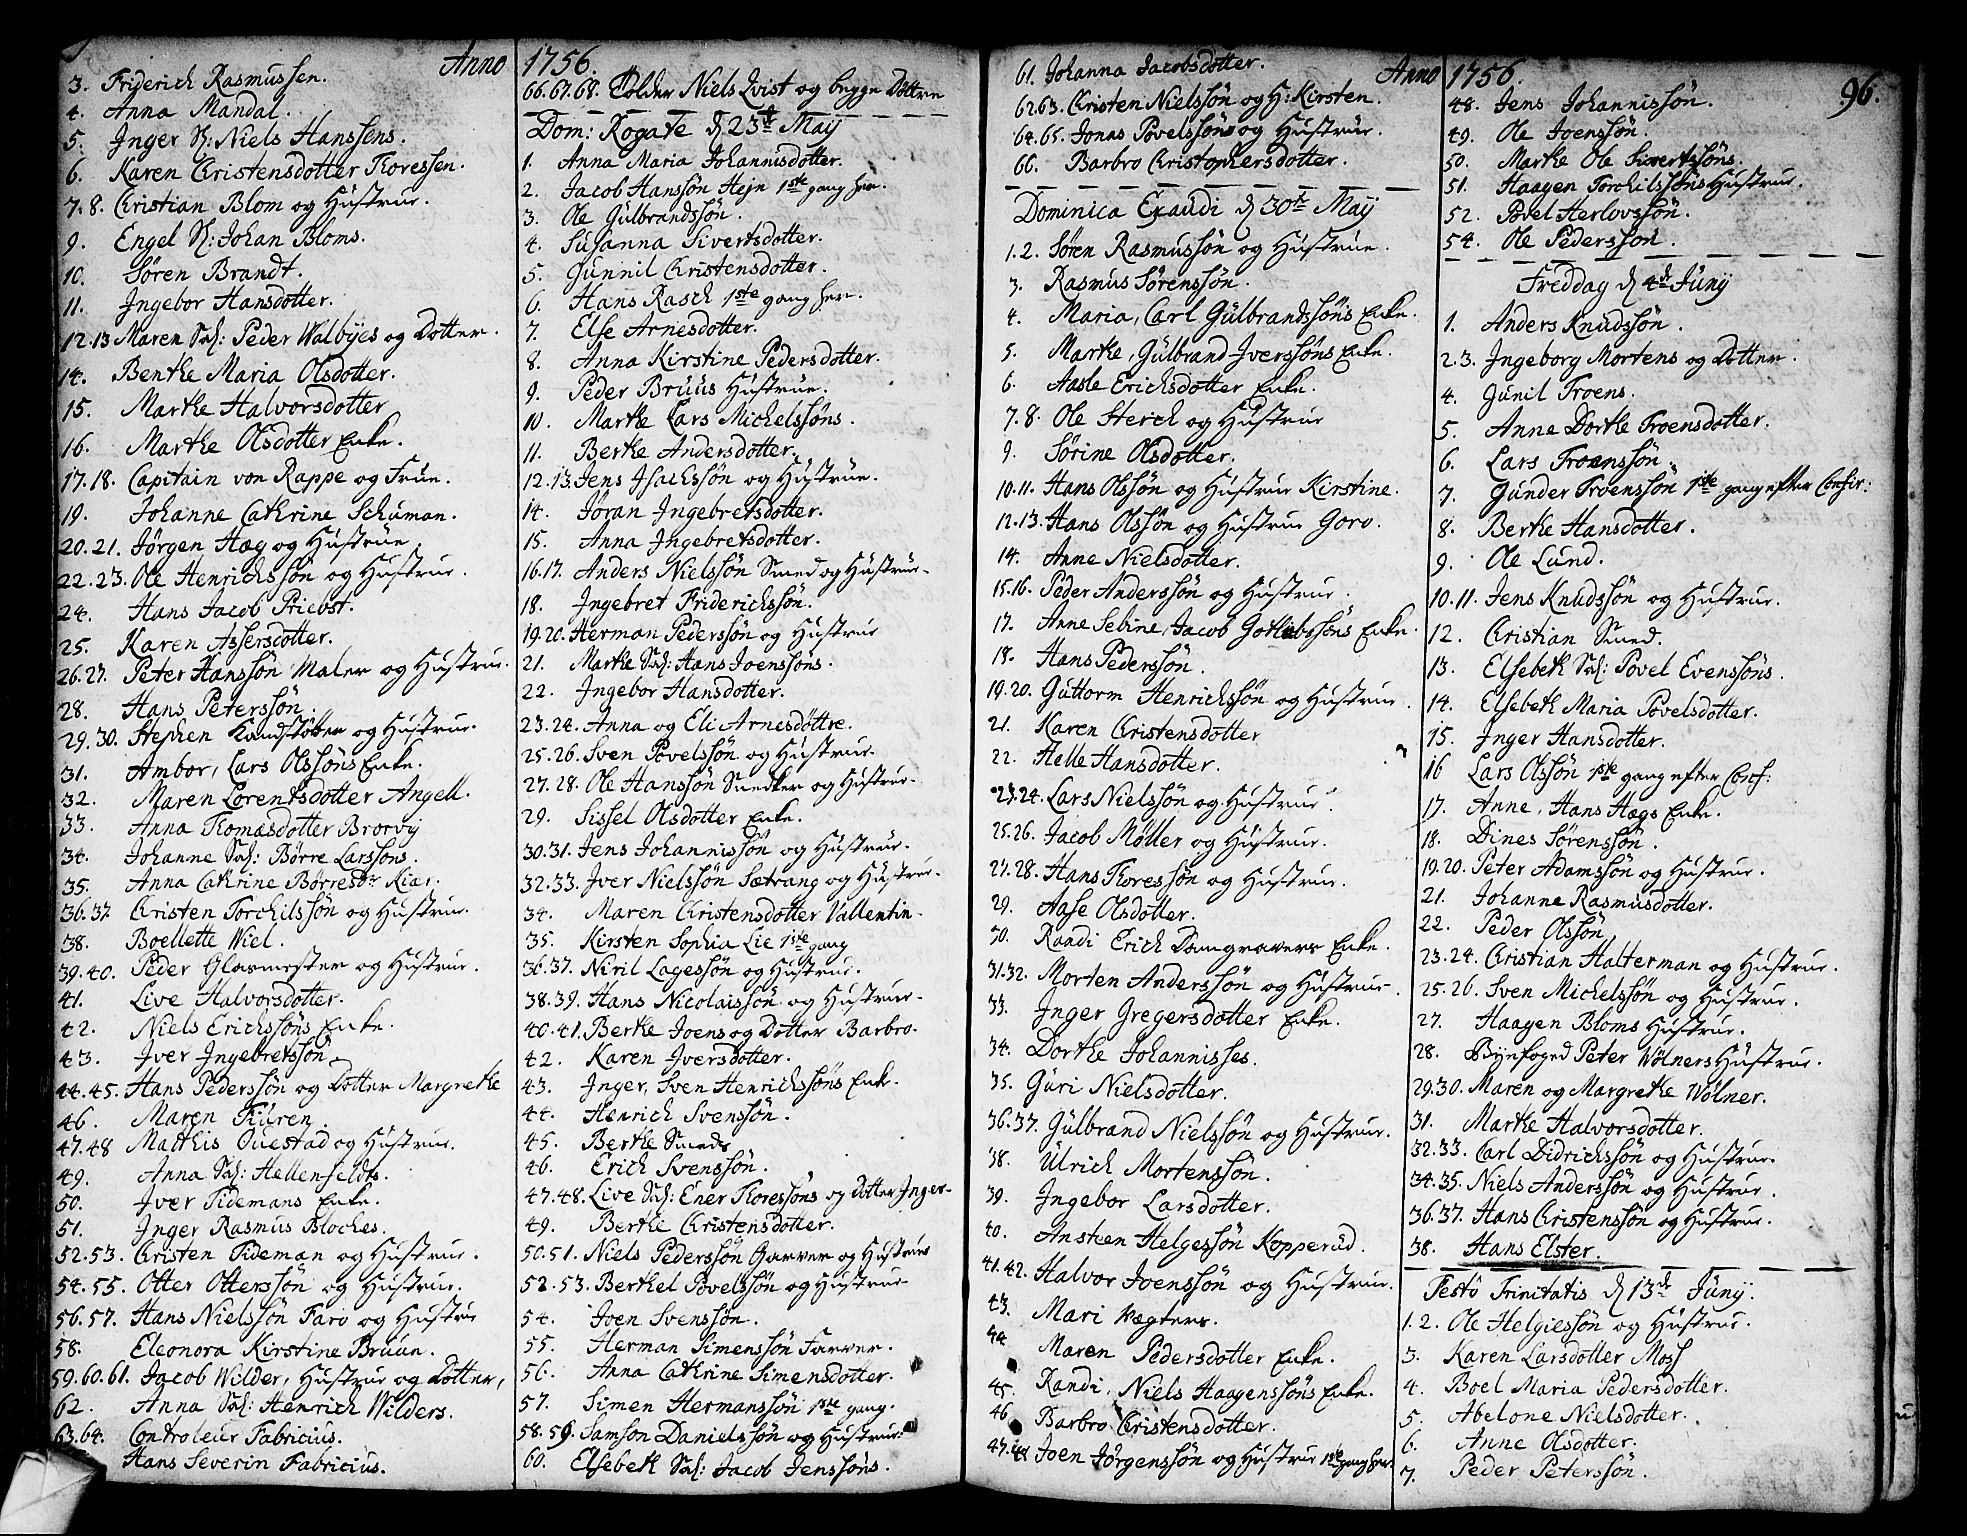 Anno
3. Friderich Rasmussen.
4. Anna Mandal.
5. Inger S: Niels Hanssens.
6. Karen Christensdotter Thoressen.
7.8. Christian Blom og Hustrue.
9. Engel S: Johan Bloms.
10. Søren Brandt.
11. Ingebor Hansdotter.
12.13 Maren Sal: Peder Walbyes og Dotter.
14. Benthe Maria Olsdotter.
15. Marthe Halvorsdotter
16. Marthe Olsdotter Enke.
17.18. Capitain von Rappe og Frue.
19. Johanne Cathrine Schuman.
20.21. Jørgen Hæg og Hustrue.
22.23. Ole Henrichssøn og Hustrue.
24. Hans Jacob Priebst.
25. Karen Assersdotter.
26.27. Peter Hanssøn Maler og Hustrue.
28. Hans Peterssøn.
29.30. Stephen Kandstøber og Hustrue.
31. Ambor, Lars Olssøns Enke.
32. Maren Lorentsdotter Angell.
33. Anna Thomasdotter Brorvy
34. Johanne Sal: Børre Larssøns.
35. Anna Cathrine Børresdr Kiær.
36.37. Christen Torchilssøn og Hustrue.
38. Boellette Wiel.
39.40. Peder Glasmester og Hustrue.
41. Live Halvorsdotter.
42. Niels Erichssøns Enke.
43. Iver Ingebretssøn
44.45. Hans Pederssøn og Dotter Margrethe
46. Maren Furen.
47.48 Mathis Questad og Hustrue.
49. Anna Sal: Hellenfeldts.
50. Iver Tidemans Enke.
51. Inger Rasmus Bloches.
52.53. Christen Tideman og Hustrue.
54.55. Otter Otterssøn og Hustrue.
56.57. Hans Nielssøn Faro og Hustrue
58. Eleonora Kirstine Bruun.
59.60.61. Jacob Wilder, Hustrue og Dotter,
62. Anna Sal: Henrich Wilders.
63.64. Controleur Fabricius.
Hans Severin Fabricius.
1756.
66.67.68. Tolder Niels Qvist og begge Døttre
Dom: Rogate d 23de May
1. Anna Maria Johannisdotter.
2. Jacob Hanssøn Hejn 1ste gang her.
3. Ole Gulbrandssøn.
4. Susanna Sivertsdotter.
5. Gunnil Christensdotter.
6. Hans Rasch 1ste gang her.
7. Else Arnesdotter.
8. Anna Kirstine Pedersdotter.
9. Peder Bruus Hustrue.
10. Marthe Lars Michelssøns.
11. Berthe Andersdotter.
12.13. Jens Isachssøn og Hustrue.
14. Jøran Ingebretsdotter.
15. Anna Ingebretsdotter.
16.17. Anders Nielssøn Smed og Hustrue.
18. Ingebret Friderichssøn.
19.20. Herman Pederssøn og Hustrue
21. Marthe Sal: Hans Joenssøns.
22. Ingebor Hansdotter.
23.24. Anna og Eli Arnesdøttre.
25.26. Sven Povelssøn og Hustrue.
27.28. Ole Hanssøn Snedker og Hustrue.
29. Sissel Olsdotter Enke.
30.31. Jens Johannissøn og Hustrue.
32.33. Iver Nielssøn Sætrang og Hustrue.
34. Maren Christensdotter Vallentin.
35. Kirsten Sophia Lie 1ste gang
36.37. Niril Lagessøn og Hustrue.
38.39. Hans Nicolaissøn og Hustrue.
40.41. Berthe Joens og Dotter Barbro.
42. Karen Iversdotter.
43. Inger, Sven Henrichssøns Enke.
44. Henrich Svenssøn.
45. Berthe Smeds
46. Erich Svenssøn.
47.48. Live Sal: Ener Thoressøns og Dotter Inger.
49. Berthe Christensdotter.
50.51. Niels Pederssøn Garver og Hustrue
52.53. Berthel Povelssøn og Hustrue
54. Joen Svenssøn.
55. Herman Simenssøn Farver.
56. Anna Cathrine Simensdotter.
57. Simen Hermanssøn 1ste gang.
58.59. Samson Danielssøn og Hustrue.
60. Elsebeth Sal: Jacob Jenssøns.
Anno
61. Johanna Jacobsdotter.
62.63. Christen Nielssøn og H: Kirsten.
64.65. Jonas Povelssøns og Hustrue.
66. Barbro Christophersdotter.
Dominica Exaudi d 30te May
1.2. Søren Rasmussøn og Hustrue.
3. Rasmus Sørenssøn.
4. Maria, Carl Gulbrandssøns Enke.
5. Marthe, Gulbrand Iverssøns Enke.
6. Aasle Erichsdotter Enke.
7.8. Ole Sterch og Hustrue
9. Sørine Olsdotter.
10.11. Hans Olssøn og Hustrue Kirstine.
12.13. Hans Olssøn og Hustrue Goro.
14. Anne Nielsdotter.
15.16. Peder Anderssøn og Hustrue.
17. Anne Sebine, Jacob Gotliebssøns Enke.
18. Hans Pederssøn.
19.20. Guttorm Henrichssøn og Hustrue.
21. Karen Christensdotter
22. Helle Hansdotter.
23.24. Lars Nielssøn og Hustrue.
25.26. Jacob Møller og Hustrue.
27.28. Hans Thoressøn og Hustrue.
29. Aase Olsdotter.
30. Raadi Erich Damgravers Enke.
31.32. Morten Anderssøn og Hustrue.
33. Inger Gregersdotter Enke.
34. Dorthe Johannisses.
35. Guri Nielsdotter.
36.37. Gulbrand Nielssøn og Hustrue.
38. Ulrich Mortenssøn.
39. Ingebor Larsdotter.
40. Ansteen Helgessøn Kopperud.
41.42. Halvor Joenssøn og Hustrue.
43. Mari Vægters.
44 Maren Pedersdotter Enke.
45. Randi, Niels Haagenssøns Enke.
46 Barbro Christensdotter.
47.48 Joen Jørgenssøn og Hustrue 1ste gang her.
1756.
96.
48. Jens Johannissøn.
49. Ole Joenssøn.
50. Marthe Ole Sivertssøns.
51. Haagen Torchilssøns Hustrue.
52. Povel Herlovssøn.
54. Ole Pederssøn.
Freddag d 4de Juny
1. Anders Knudssøn.
2.3. Ingeborg Mortens og Dotter.
4. Gunil Troens.
5. Anne Dorthe Troensdotter.
6. Lars Troenssøn.
7. Gunder Troenssøn 1ste gang efter Confir:
8. Berthe Hansdotter.
9. Ole Lund.
10.11. Jens Knudssøn og Hustrue.
12. Christian Smed.
13. Elsebeth Sal: Povel Evenssøns.
14. Elsebeth Maria Povelsdotter.
15. Inger Hansdotter.
16 Lars Olssøn 1ste gang efter Conf:
17. Anne, Hans Hægs Enke.
18. Dines Sørenssøn.
19.20. Peter Adamssøn og Hustrue.
21. Johanne Rasmusdotter.
22. Peder Olssøn
23.24. Christian Halterman og Hustrue.
25.26. Sven Michelssøn og Hustrue.
27. Haagen Bloms Hustrue.
28. Byefoged Peter Wølners Hustrue.
29.30. Maren og Margrethe Wølner.
31. Marthe Halvorsdotter.
32.33. Carl Didrichssøn og Hustrue.
34.35. Niels Anderssøn og Hustrue.
36.37. Hans Christenssøn og Hustrue.
38. Hans Elster.
Festo Trinitatis d 13de Juny.
1.2. Ole Helgiessøn og Hustrue.
3. Karen Larsdotter Moss
4. Boel Maria Pedersdotter.
5. Abelone Nielsdotter.
6. Anne Olsdotter.
7. Peder Peterssøn.